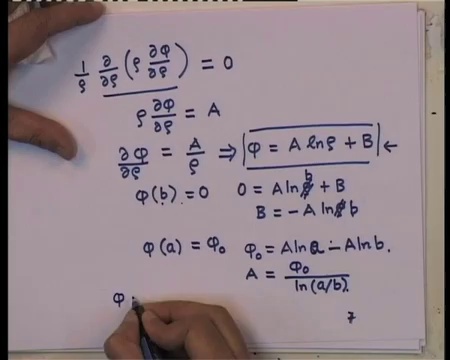 1/ρ ∂/∂ρ (ρ ∂φ/∂ρ) = 0
ρ ∂φ/∂ρ = A
∂φ/∂ρ = A/ρ ⇒ φ = A ln ρ + B ←
φ(b) = 0 0 = A ln b + B
B = -A ln b
φ(a) = φ₀ φ₀ = A ln a - A ln b.
A = φ₀/ln(a/b).
φ
7